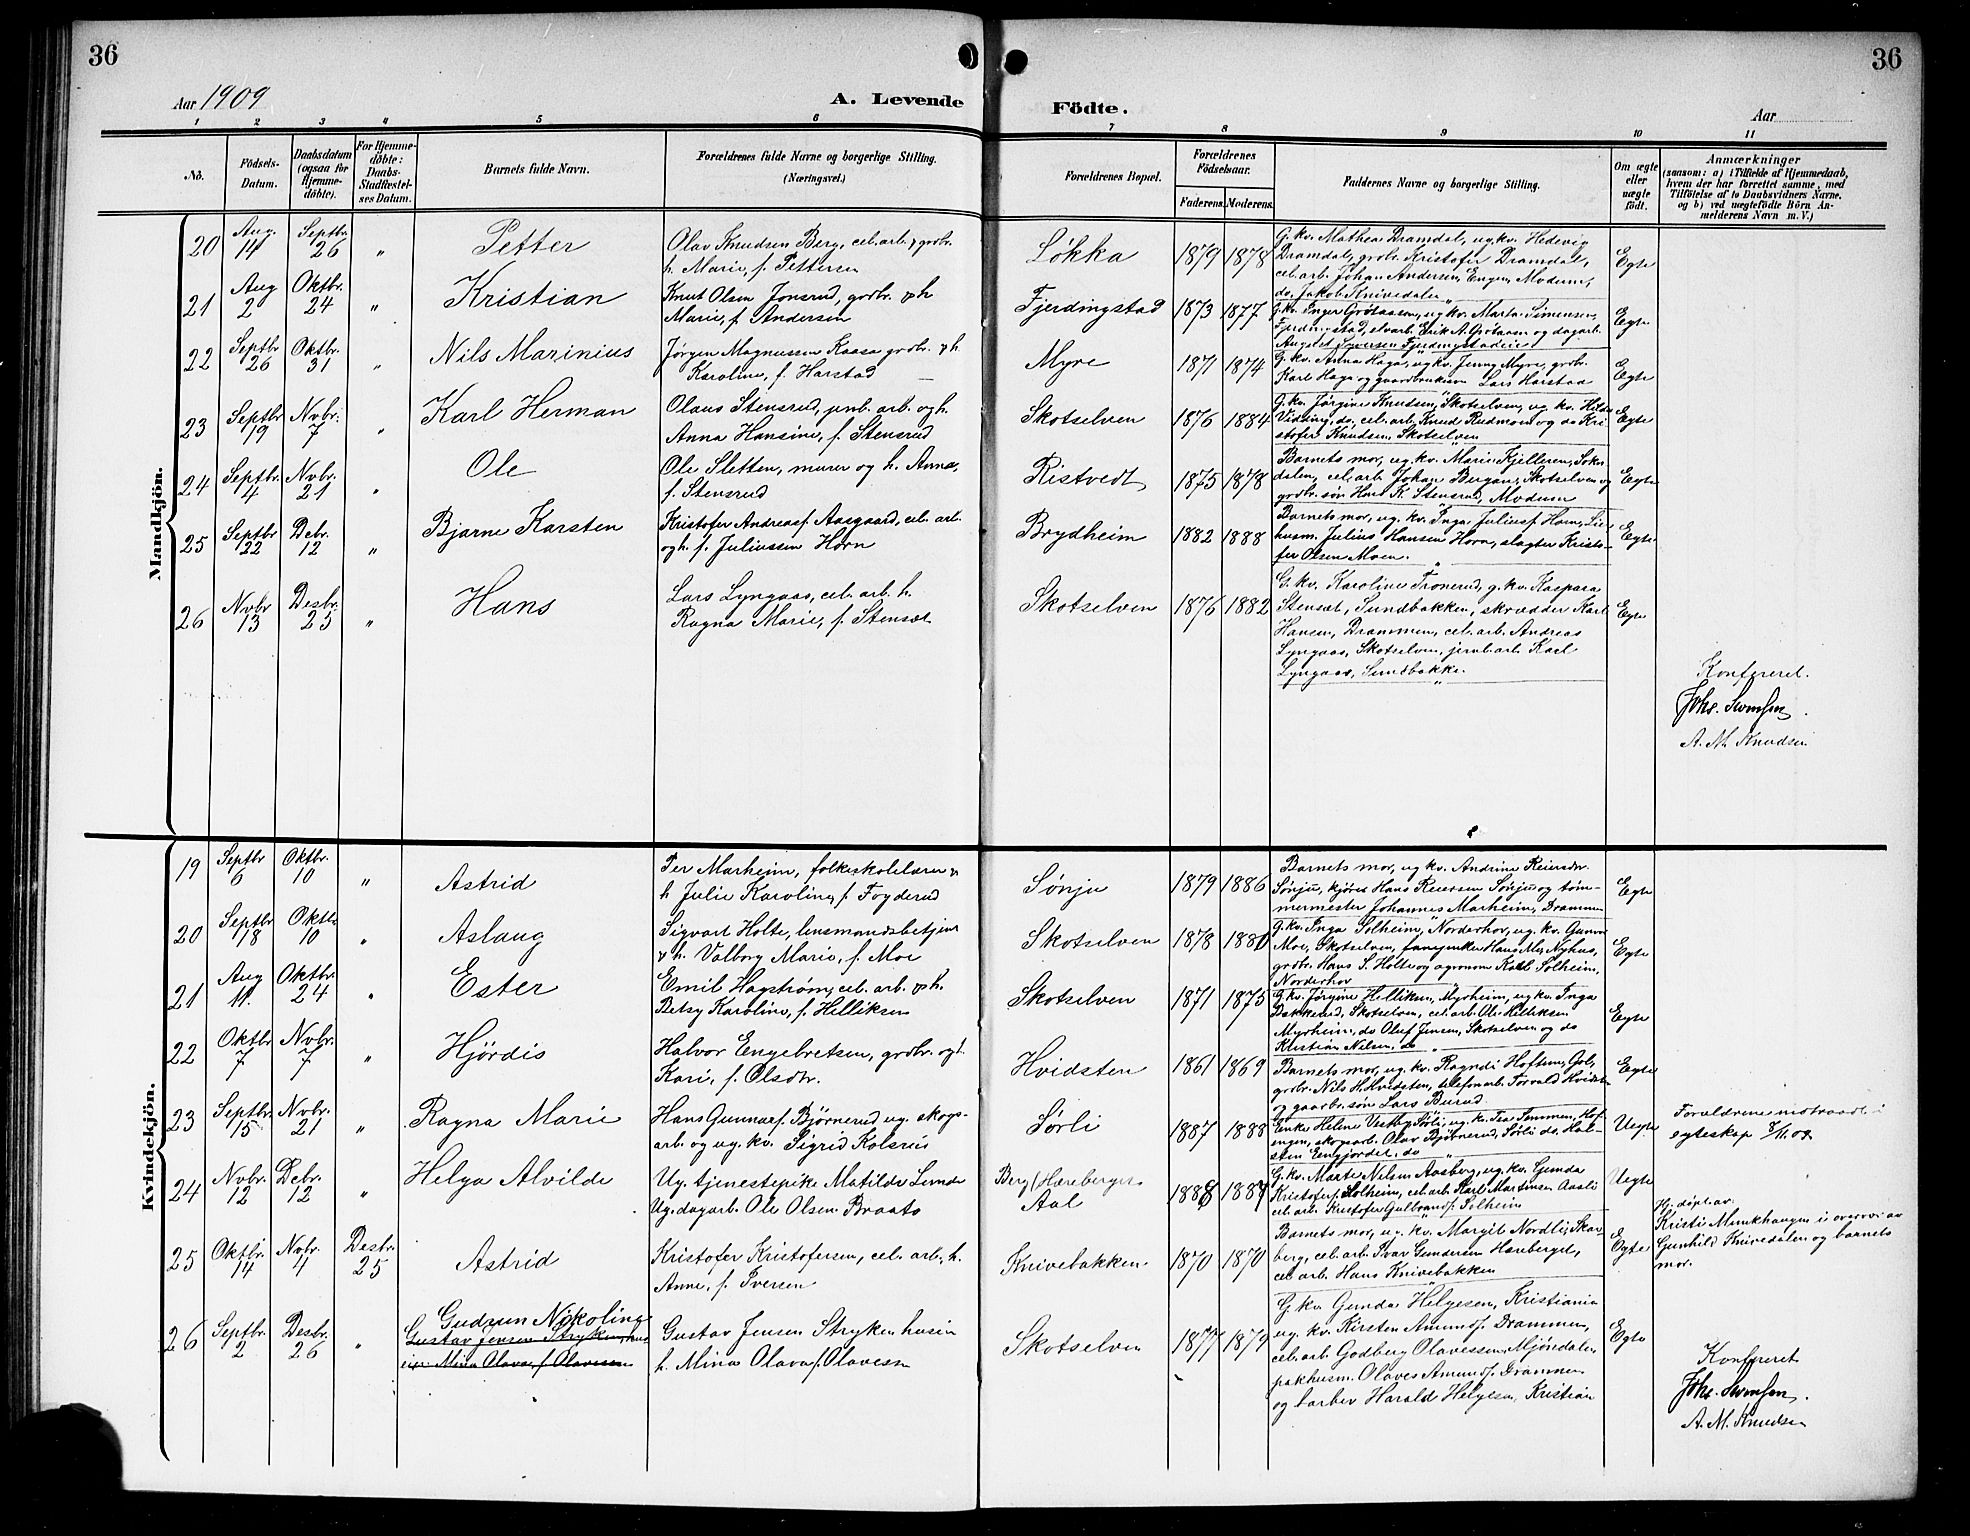 36
36
Aar 1909
A. Levende
Födte.
Aar
1 2 3 4 5 6 7 8 9 10 11
No.
Födsels-
Datum.
Daabsdatum
(ogsaa for
Hjemme-
döbte).
For Hjemme-
döbte:
Daabs-
Stadfæstel-
ses Datum.
Barnets fulde Navn.
Forældrenes fulde Navne og borgerlige Stilling.
(Næringsvei.)
Forældrenes Bopæl.
Forældrenes
Födselsaar.
Faderens. Moderens.
Faddernes Navne og borgerlig Stilling.
Om ægte
eller
uægte
födt.
Anmærkninger
(saasom: a) i Tilfælde af Hjemmedaab,
hvem der har forrettet samme, med
Tilföielse af to Daabsvidners Navne.
og b) ved uægtefödte Börn An-
melderens Navn m. V.)
Mandkjön.
20 Aug. 14 Septbr. 26 " Petter
Olav Knudsen Berg, cel. arb. & grdbr.
h. Marie, f. Pettersen
Løkka 1879 1878
G. kv. Mathea Dramdal, ug. kv. Hedevig
Dramdal, grdbr. Kristofer Dramdal,
cel. arb. Johan Andersen, Engen, Modum,
do. Jakob Knivedalen
Egte
21 Aug 2 Oktbr. 24 " Kristian
Knut Olsen Jonsrud, grdbr. & h
Marie, f. Andersen
Fjerdingstad 1873 1877
G. kv. Inger Grøtaasen, ug. kv. Marta Simensen,
Fjerdingstad, elvarb. Erik A. Grøtaasen og dagarb.
August Syversen Fjerdingstadeie
Egte
22 Septbr 26 Oktbr. 31 " Nils Marinius
Jørgen Magnussen Kaasa grdbr. & h.
Karoline, f. Harstad
Myre 1871 1874
G. kv. Anna Haga, ug. kv. Jenny Myre, grdbr.
Karl Haga og gaardbruker Lars Harstad
Egte
23 Septbr 19 Nvbr. 7 " Karl Herman
Olaus Stensrud, jrnb. arb. og h.
Anna Hansine, f. Stensrud
Skotselven 1876 1884
G. kv. Jørgine Knudsen, Skotselven, ug. kv. Hilda
Viding, do, cel. arb. Knud Rudmoen og do Kri-
stofer Knudsen Skotselven
Egte
24 Septbr. 4 Nvbr. 21 " Ole
Ole Sletten, murer og h. Anna,
f. Stensrud
Ristvedt 1875 1878
Barnets mor, ug. kv. Marie Kjelleren, Sokn-
dalen, cel. arb. Johan Bergan, Skotselven og
grdbr. søn Hans K. Stensrud, Modum
Egte
25 Septbr 22 Debr. 12 " Bjarne Karsten
Kristofer Andreasf. Aasgaard, cel. arb.
og h. f. Juliussen Horn
Brydheim 1882 1888
Barnets mor, ug. kv. Inga Juliusf. Horn, Lier
husm. Julius Hansen Horn, slagter Kristo-
fer Olsen Moen.
Egte
26 Nvbr 13 Desbr. 25 " Hans
Lars Lyngaas, cel. arb. h.
Ragna Marie, f. Stensæt
Skotselven 1876 1882
G. kv. Karoline Tronerud, g. kv. Kaspara
Stensæt, Sundbakken, skrædder Karl
Hansen, Drammen, cel. arb. Andreas
Lyngaas, Skotselven, jernb. arb. Karl
Lyngaas, Sundbakke.
Egte
Konfereret.
Johs. Svensen.
A. M. Knudsen
Kvindekjön.
19 Septbr 6 Oktbr. 10 " Astrid
Per Marheim, folkeskolelærer &
h Julie Karoline, f. Foyderud
Sønju 1879 1886
Barnets mor, ug kv. Andrine Reiersdr.
Sønju, kjører Hans Reiersen Sønju og tøm-
mermester Johannes Marheim, Drammen
Egte
20 Septbr 18 Oktbr 10 " Aslaug
Sigvart Holte, lensmandsbetjent
& h. Valborg Marie, f. Moe
Skotselven 1878 1880
G. kv. Inga Solheim, Norderhov, ug. kv. Gunvor
Moe, Skotselven, fanejunker Hans M. Nyhus,
grdbr. Hans S. Holte og agronom Karl Solheim,
Norderhov
Egte
21 Aug 11. Oktbr. 24 " Ester
Emil Hagstrøm, cel. arb. & h.
Betsy Karoline, f. Helliksen
Skotselven 1871 1875
G. kv. Jørgine Helliksen, Myrheim, ug kv. Inga
Bakkerud, Skotselven, cel. arb. Ole Helliksen
Myrheim, do Oluf Jensen, Skotselven og do
Kristian Nilsen, do
Egte
22 Oktbr 7 Nvbr. 7 " Hjørdis
Halvor Engebretsen, grdbr. og h.
Kari, f. Olsdtr.
Hvidsten 1861 1869
Barnets mor, ug. kv. Ragndi Hoftun, Gol,
grdbr. Nils H. Hvidsten, telefonarb. Torvald Hvidsten
og gaardbr. søn Lars Burud
Egte
23 Septbr. 15 Nvbr. 21 " Ragna Marie
Hans Gunnarf. Bjørnerud ug. skogs-
arb. og ug. kv. Sigrid Kolsrud
Sørli 1887 1888
Enke Helene Vestby Sørli, ug. kv. Tea Semmen, Hof
engen, skogarb. Olav Bjørnerud, Sørli do. Hal-
sten Engjordet, do
Uegte
Forældrene indtraadt i
egteskap 7/11.09
24 Nvbr. 12 Debr. 12 " Helga Alvilde
Ug. tjenestepike Matilde Lunde
Ug. dagarb. Ole Olsen Braata
Berg / Hæreberget
Aal
1888 1887
G. kv. Marte Nilsen Aasberg, ug. kv. Gunda
Kristoferf. Solheim, cel. arb. Karl Martinsen Aasli
cel. arb. Kristofer Gulbrandf. Solheim
Uegte
25 Oktbr. 14 Nvbr. 4 Desbr. 25 Astrid
Kristofer Kristofersen, cel. arb. h.
Anne, f. Iversen
Knivebakken 1870 1870
Barnets mor, ug. kv. Margit Nordli, Skar-
berg, cel. arb. Ivar Gundersen Hareberget,
cel arb. Hans Knivebakken
Egte
Hj. døpt av.
Kristi Munkhaugen i overvær av
Gunhild Knivedalen og barnets
mor.
26 Septbr. 2 Desbr. 26 " Gudrun Nikoline
Gustav Jensen Stryken, hus
eier Mina Olava, f. Olavesen
Gustav Jensen Stryken husier
h. Mina Olava, f. Olavesen
Skotselven 1877 1879
G. kv. Gunda Helgesen, Kristiania
ug. kv. Kirsten Amundf. Drammen,
cel. arb. Godberg Olavessen, Mjøndalen
pakhusm. Olaves Amundf. Drammen
og barber Harald Helgesen, Kristian
Egte
Konfereret
Johs. Svensen.
A. M. Knudsen